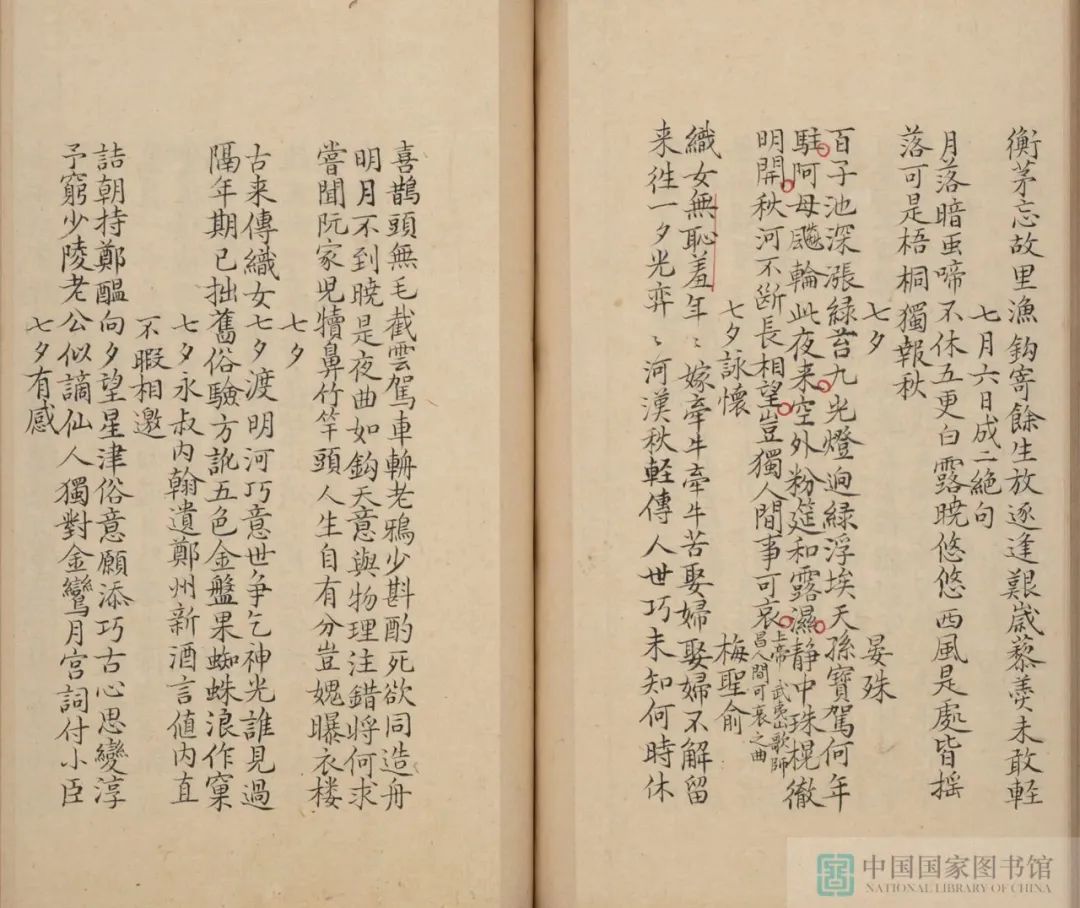 衡茅忘故里漁鈎寄餘生放逐逢艱歳藜羮未敢輕
七月六日成二絕句
月落暗蛩啼不休五更白露曉悠悠西風是處皆揺
落可是梧桐獨報秋
七夕 晏殊
百子池深漲緑苔九光燈迥緑浮埃天孫寶駕何年
駐阿母飈輪此夜来空外粉筵和露濕静中珠榥徹
明開秋河不断長相望豈獨人間事可哀上帝 武夷山歌師昌人間可哀之曲
七夕詠懷 梅聖俞
織女無恥羞年〻嫁牽牛牽牛苦娶婦娶婦不解留
来徃一夕光弈〻河漢秋輕傳人世巧未知何時休
喜鵲頭無毛截雲駕車輈老鴉少斟酌死欲同造舟
明月不到曉是夜曲如鈎天意與物理注錯将何求
嘗聞阮家児犢鼻竹竿頭人生自有分豈媿曝衣楼
七夕
古来傳織女七夕渡明河巧意世争乞神光誰見過
隔年期已拙舊俗驗方訛五色金盤果蜘蛛浪作窠
七夕永叔内翰遺鄭州新酒言値内直
不暇相邀
詰朝持鄭醖向夕望星津俗意願添巧古心思變淳
予窮少陵老公似謫仙人獨對金鸞月宮詞付小臣
七夕有感
中国国家图书馆
NATIONAL LIBRARY OF CHINA